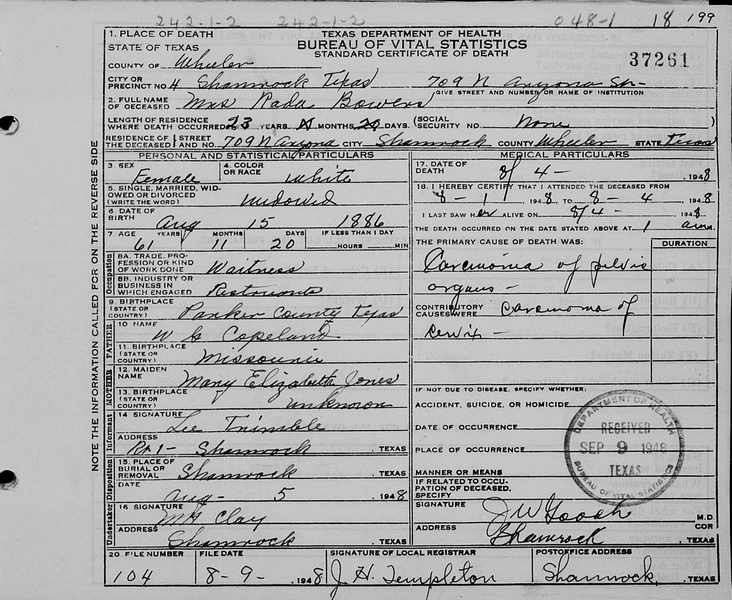 242-1-2 242-1-2 048-1 18 199
1. PLACE OF DEATH
STATE OF TEXAS
TEXAS DEPARTMENT OF HEALTH
BUREAU OF VITAL STATISTICS
STANDARD CERTIFICATE OF DEATH
37261
COUNTY OF Wheeler
CITY OR PRECINCT NO. 4 Shamrock Texas 709 N Aryona St-
GIVE STREET AND NUMBER OR NAME OF INSTITUTION
2. FULL NAME OF DECEASED Mrs Rada Bowers
LENGTH OF RESIDENCE WHERE DEATH OCCURRED 23 YEARS MONTHS 20 DAYS. (SOCIAL SECURITY NO. None
RESIDENCE OF THE DECEASED (STREET AND NO. 709 N Arizona CITY Shamrock COUNTY Wheeler STATE Texas
PERSONAL AND STATISTICAL PARTICULARS
3. SEX Female
4. COLOR OR RACE White
5. SINGLE, MARRIED, WIDOWED OR DIVORCED (WRITE THE WORD) Widowed
6. DATE OF BIRTH Aug 15 1886
7. AGE YEARS MONTHS DAYS IF LESS THAN 1 DAY
61 11 20 HOURS MIN
8A. TRADE, PROFESSION OR KIND OF WORK DONE Waitness
8B. INDUSTRY OR BUSINESS IN WHICH ENGAGED Restront
9. BIRTHPLACE (STATE OR COUNTRY) Parker County Texas
10 NAME W C Copeland
11. BIRTHPLACE (STATE OR COUNTRY) Missourie
12. MAIDEN NAME Mary Elizabeth Jones
13. BIRTHPLACE (STATE OR COUNTRY) unknown
14 SIGNATURE Lee Trimble
ADDRESS Rt 1- Shamrock TEXAS
15. PLACE OF BURIAL OR REMOVAL Shamrock TEXAS
DATE Aug- 5 1948
16 SIGNATURE Clay
ADDRESS Shamrock TEXAS
MEDICAL PARTICULARS
17. DATE OF DEATH 8/4- 1948
18. I HEREBY CERTIFY THAT I ATTENDED THE DECEASED FROM
8-1 1948 TO 8-4 1948
I LAST SAW HER ALIVE ON 8/4- 1948
THE DEATH OCCURRED ON THE DATE STATED ABOVE AT 1 am.
THE PRIMARY CAUSE OF DEATH WAS: DURATION
Carcinoma of pelvis
organs-
CONTRIBUTORY CAUSES WERE carcinoma of
cervix-
IF NOT DUE TO DISEASE, SPECIFY WHETHER:
ACCIDENT, SUICIDE, OR HOMICIDE
DATE OF OCCURRENCE
PLACE OF OCCURRENCE
MANNER OR MEANS
IF RELATED TO OCCUPATION OF DECEASED, SPECIFY
SIGNATURE J W Gooch M.D.
COR
ADDRESS Shamrock TEXAS
DEPARTMENT OF HEALTH
RECEIVED
SEP 9 1948
TEXAS
BUREAU OF VITAL STATISTICS
20. FILE NUMBER FILE DATE SIGNATURE OF LOCAL REGISTRAR POSTOFFICE ADDRESS
104 8-9- 1948 J. H. Templeton Shamrock, TEXAS
NOTE THE INFORMATION CALLED FOR ON THE REVERSE SIDE
Occupation
FATHER
MOTHER
Informant
Disposition
Undertaker